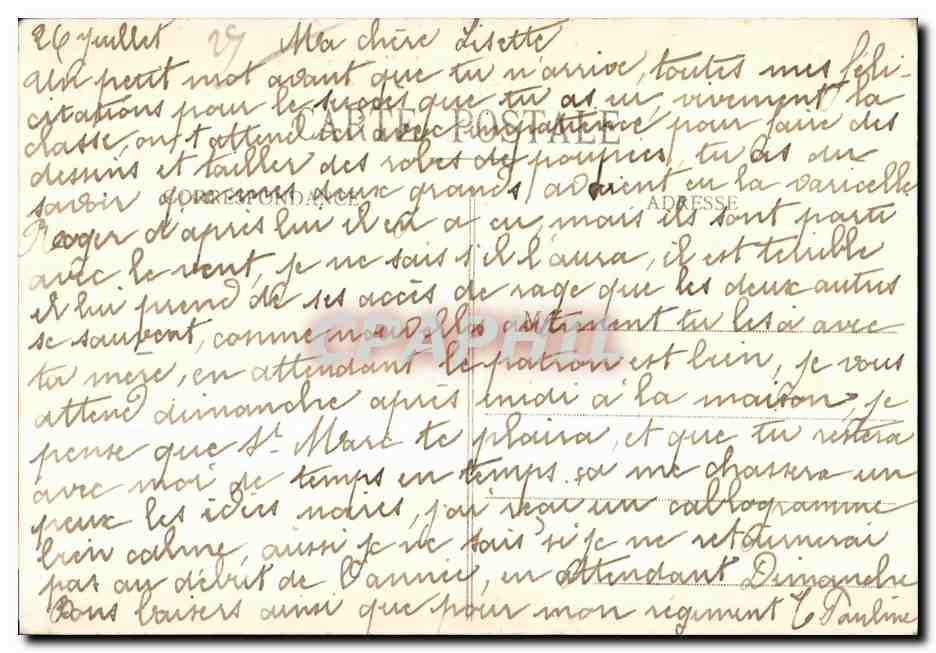 26 juillet 27 Ma chère Lisette
Un petit mot avant que tu n'arrive, toutes mes féli-
citations pour le succès que tu as eu, vivement la
CARTE POSTALE
classe, on t'attend avec impatience pour faire des
dessins et tailler des robes de poupées, tu as du
savoir que mes deux grands, avaient eu la varicelle
CORRESPONDANCE ADRESSE
Roger d'après lui il en a eu, mais ils sont parti
avec le vent, je ne sais s'il l'aura, il est terrible
il lui prend de ses accès de rage que les deux autres
se sauvent, comme nouvelles autrement tu les a avec
M
CPARPHIL
ta mère, en attendant le patron est bien, je vous
attend dimanche après midi à la maison, je
pense que St Marc te plaira, et que tu restera
avec moi de temps en temps. ça me chassera un
peux les idées noires, j'ai reçu un cablogramme
bien calme, aussi je ne sais si je ne retournerai
pas au début de l'année, en attendant Dimanche
Bons baisers ainsi que pour mon régiment T Pauline